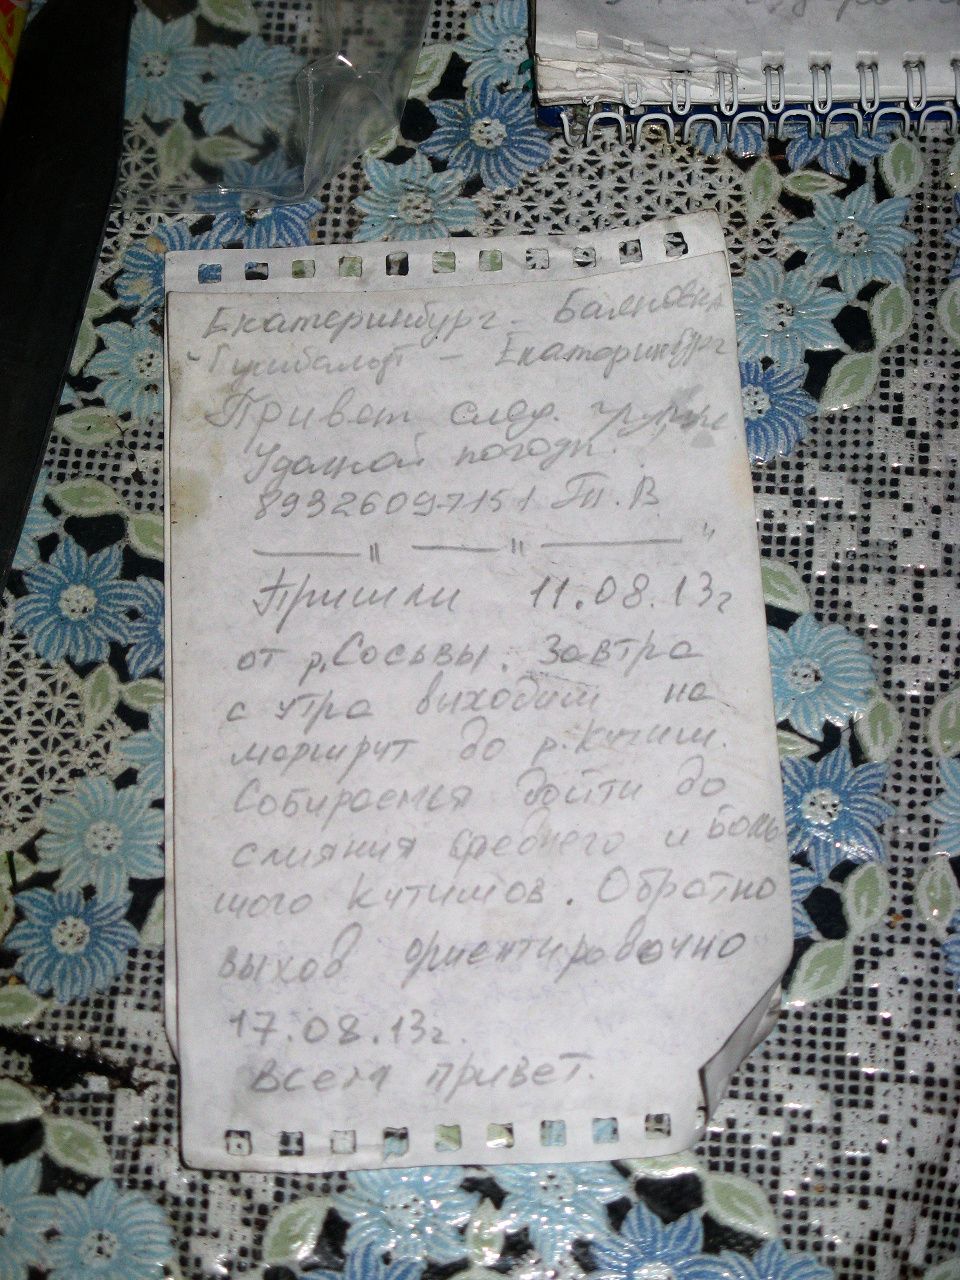 Екатеринбург – Баяновка
– Екатеринбург
Привет след. группе
Удачной погоды.
89326097151 Т.В.
— " — " — "
Пришли 11.08.13г
от р.Сосьвы. Завтра
с утра выходим на
маршрут до р.Кутим.
Собираемся дойти до
слияния Среднего и Боль
шого Кутимов. Обратно
выход ориентировочно
17.08.13г.
Всем привет.